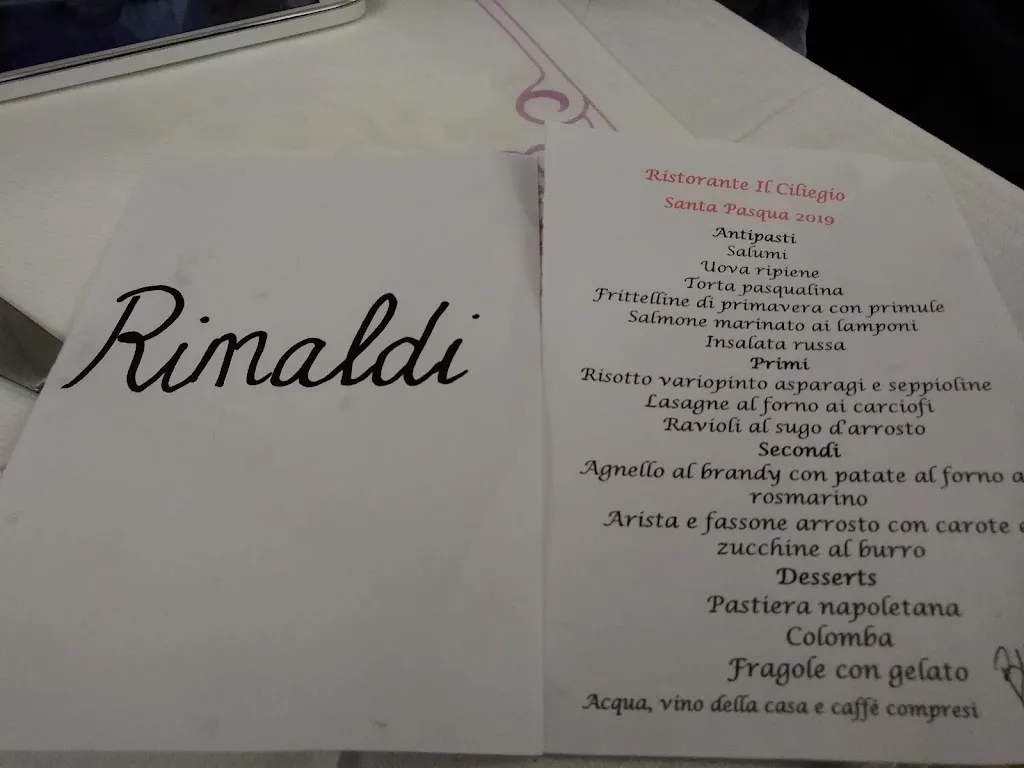 Rinaldi
Ristorante Il Ciliegio
Santa Pasqua 2019
Antipasti
Salumi
Uova ripiene
Torta pasqualina
Frittelline di primavera con primule
Salmone marinato ai lamponi
Insalata russa
Primi
Risotto variopinto asparagi e seppioline
Lasagne al forno ai carciofi
Ravioli al sugo d'arrosto
Secondi
Agnello al brandy con patate al forno a
rosmarino
Arista e fassone arrosto con carote e
zucchine al burro
Desserts
Pastiera napoletana
Colomba
Fragole con gelato
Acqua, vino della casa e caffè compresi